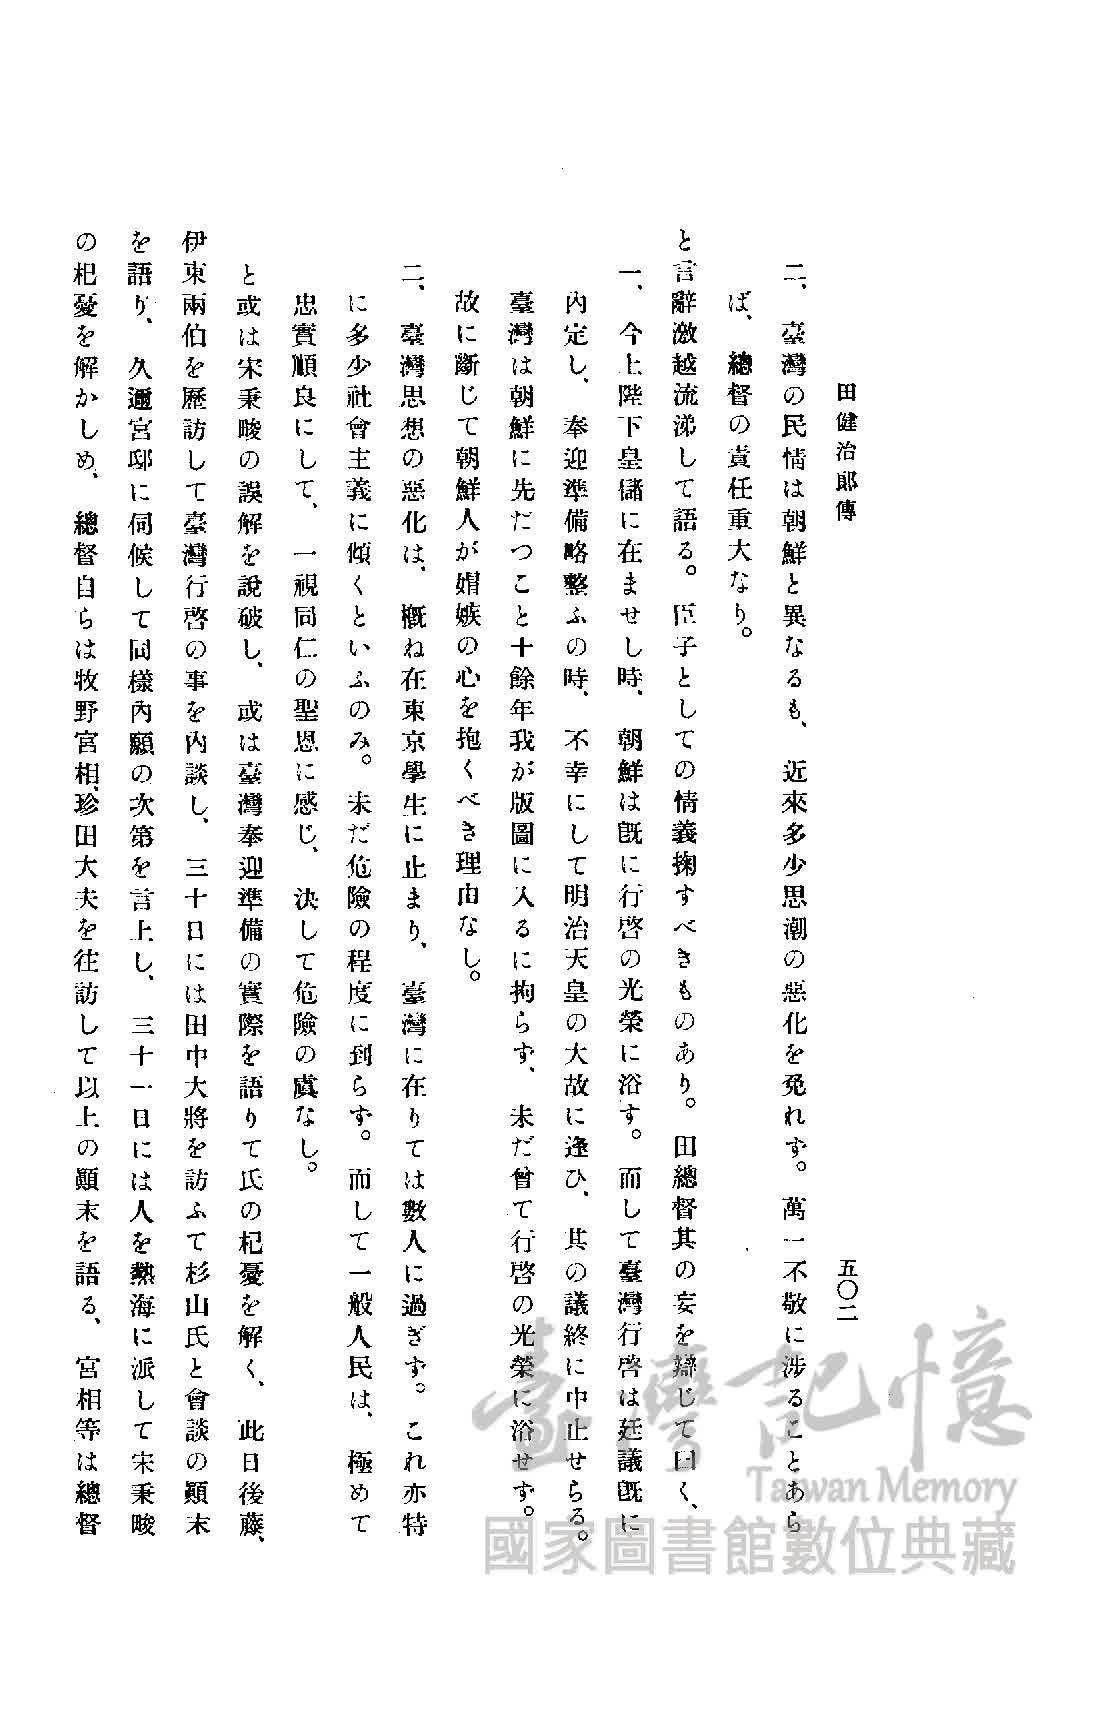 田健治郎傳
五〇二
二、臺灣の民情は朝鮮と異なるも、近來多少思潮の惡化を免れず。萬一不敬に涉ることあら
ば、總督の責任重大なり。
と言辭激越流涕して語る。臣子としての情義掬すべきものあり。田總督其の妄を辯じて曰く、
一、今上陛下皇儲に在ませし時、朝鮮は既に行啓の光榮に浴す。而して臺灣行啓は廷議既に
內定し、奉迎準備略整ふの時、不幸にして明治天皇の大故に逢ひ、其の議終に中止せらる。
臺灣は朝鮮に先だつこと十餘年我が版圖に入るに拘らず、未だ曾て行啓の光榮に浴せず。
故に斷じて朝鮮人が媢嫉の心を抱くべき理由なし。
二、臺灣思想の惡化は、概ね在東京學生に止まり、臺灣に在りては數人に過ぎず。これ亦特
に多少社會主義に傾くといふのみ。未だ危險の程度に到らず。而して一般人民は、極めて
忠實順良にして、一視同仁の聖恩に感じ、決して危險の虞なし。
と或は宋秉畯の誤解を說破し、或は臺灣奉迎準備の實際を語りて氏の杞憂を解く、此日後藤、
伊東兩伯を歷訪して臺灣行啓の事を內談し、三十日には田中大將を訪ふて杉山氏と會談の顚末
を語り、久邇宮邸に伺候して同樣內願の次第を言上し、三十一日には人を熱海に派して宋秉畯
の杞憂を解かしめ、總督自らは牧野宮相、珍田大夫を往訪して以上の顚末を語る、宮相等は總督
臺灣記憶
Taiwan Memory
國家圖書館數位典藏